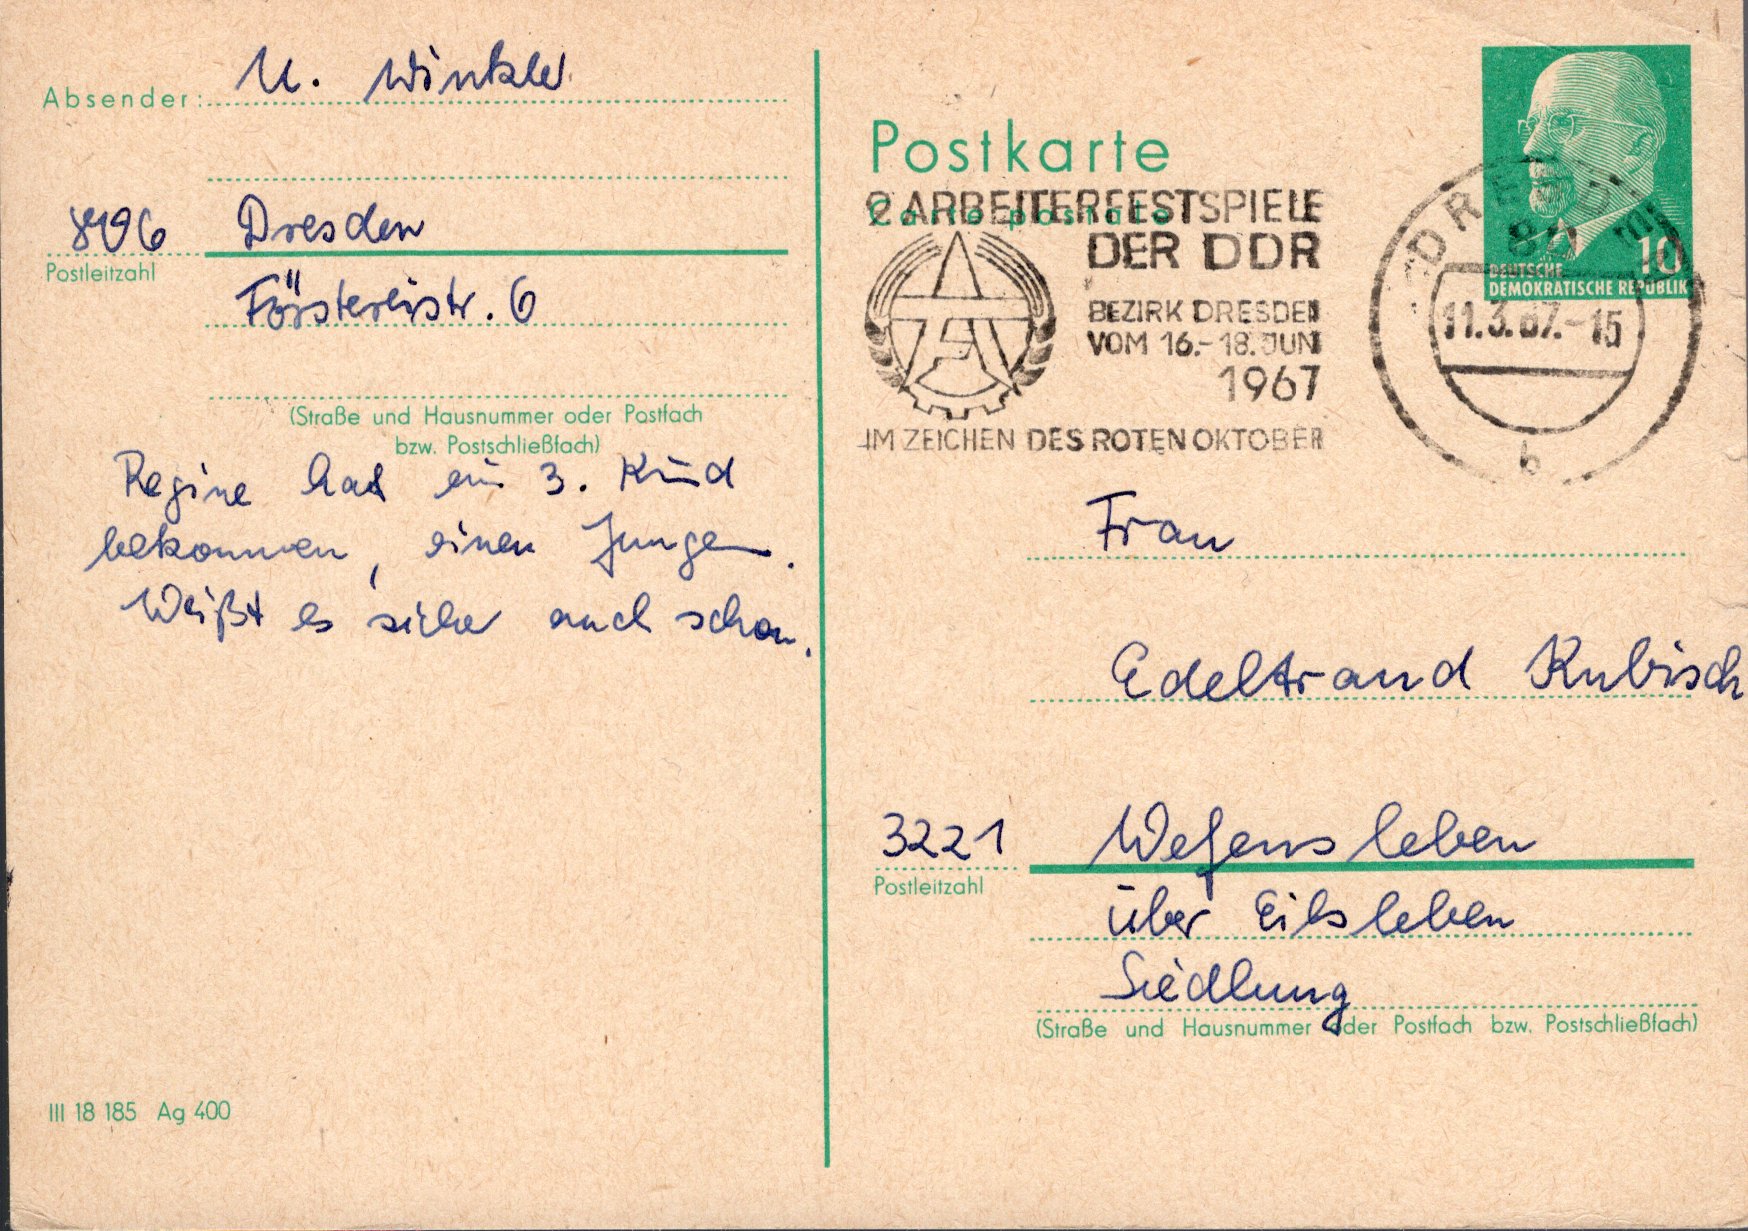 Absender: U. Winkler
8096 Dresden
Postleitzahl
Förstereistr. 6
(Straße und Hausnummer oder Postfach
bzw. Postschließfach)
Regine hat ein 3. Kind
bekommen, einen Jungen.
Weißt es sicher auch schon.
III 18 185 Ag 400
Postkarte
Carte postale
9. ARBEITERFESTSPIELE
DER DDR
BEZIRK DRESDEN
VOM 16.–18. JUNI
1967
IM ZEICHEN DES ROTEN OKTOBER
DRESDEN
80
11.3.67.-15
b
10
DEUTSCHE
DEMOKRATISCHE REPUBLIK
Frau
Edeltraud Kubisch
3221 Wefensleben
Postleitzahl
über Eilsleben
Siedlung
(Straße und Hausnummer oder Postfach bzw. Postschließfach)